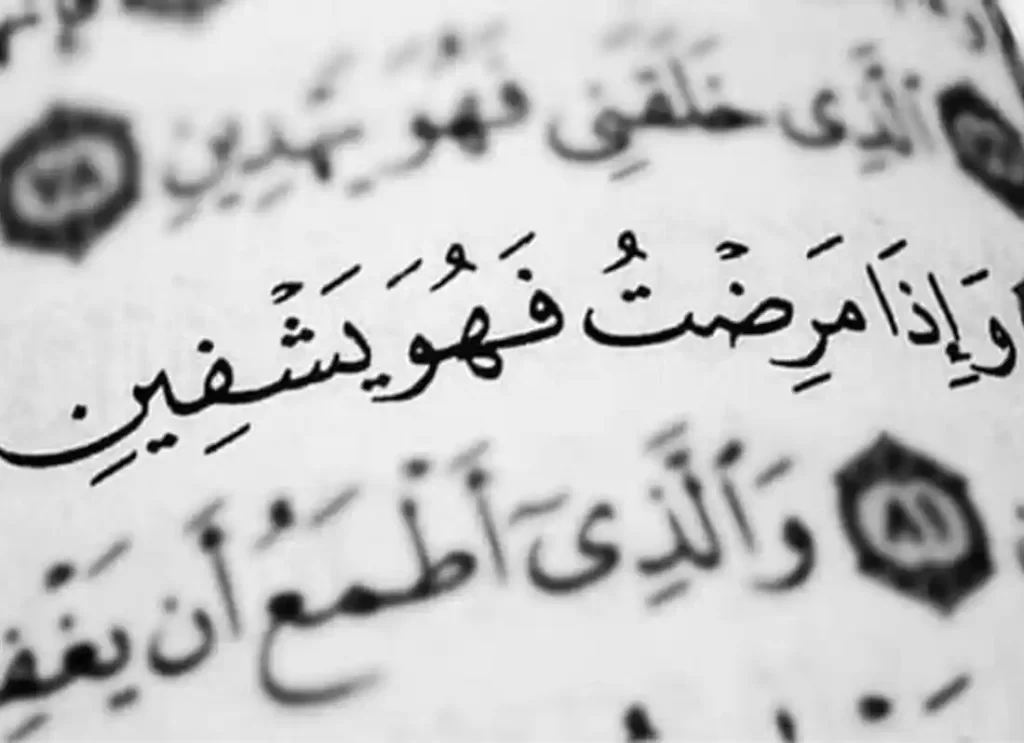 ٱلَّذِى خَلَقَنِى فَهُوَ يَهْدِينِ ٧٨
وَإِذَا مَرِضْتُ فَهُوَ يَشْفِينِ
٨١ وَٱلَّذِىٓ أَطْمَعُ أَن